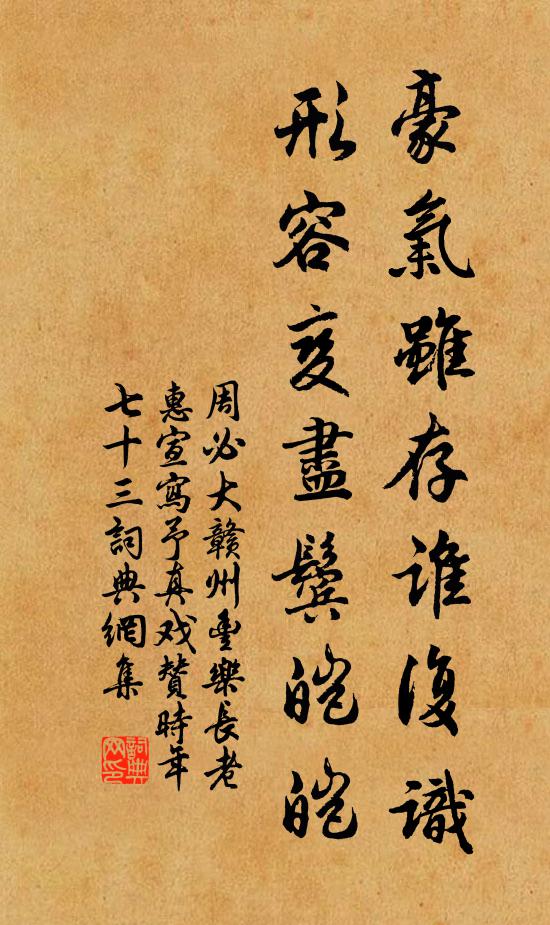 豪氣雖存誰復識
形容变盡鬓皑皑
周必大赣州豊樂長老
惠宣寫予真戏賛時年
七十三詞典網集
詞典网印